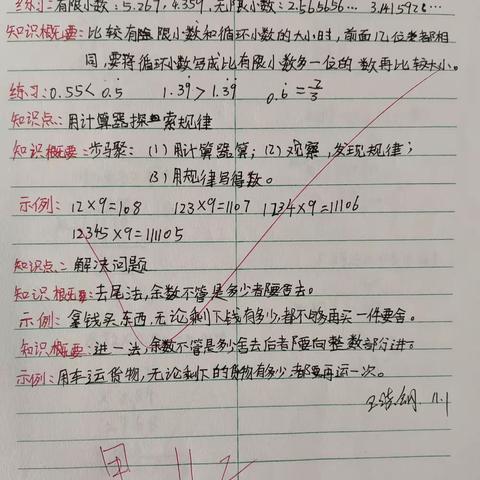 练习:有限小数:5.267,4.359,无限小数:2.565656… 3.141592…
知识概要:比较有限小数和循环小数的大小时,前面几位都相
同,要将循环小数写成比有限小数多一位的数再比较大小。
练习:0.55<0.5̇ 1.39̇>1.3̇9̇ 0.6̇=2/3
知识点:用计算器探索规律
知识概要:步骤:(1)用计算器算;(2)观察,发现规律;
(3)用规律写得数。
示例:12×9=108 123×9=1107 1234×9=11106
12345×9=111105
知识点:解决问题
知识概要:去尾法,余数不管是多少都要舍去。
示例:拿钱买东西,无论剩下钱有多少,都不够再买一件要舍。
知识概要:进一法,余数不管是多少舍去后都要向整数部分进。
示例:用车运货物,无论剩下的货物有多少都要再运一次。